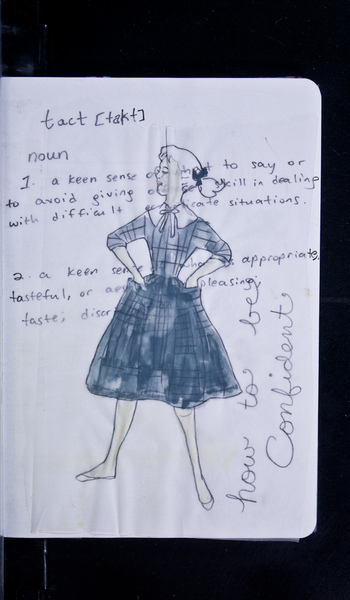 tact [takt]
noun
1. a keen sense of what to say or
to avoid giving skill in dealing
with difficult or delicate situations.
2. a keen sense what is appropriate,
tasteful, or pleasing;
taste;
how to be
Confident